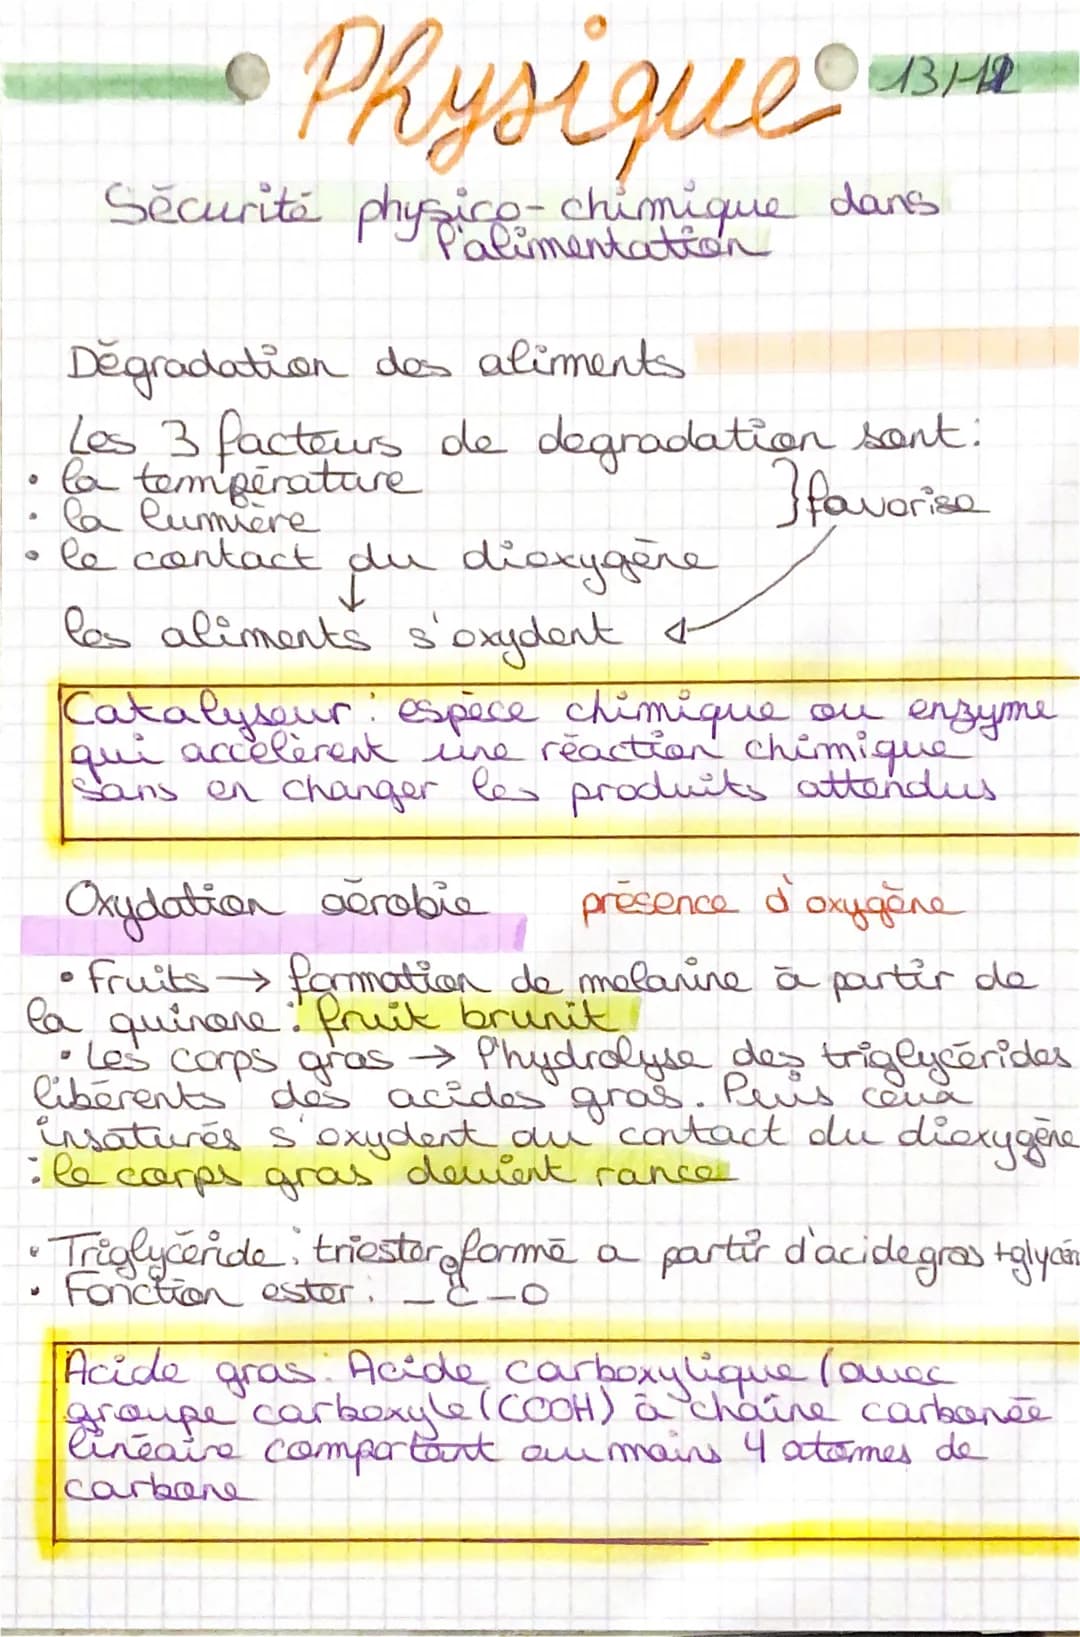 Physique
Sécurité physico-chimique dans
l'alimentation
Dégradation des aliments
Les 3 facteurs de degradation sont:
• la température
• la lumière
} favorise
• le contact du dioxygène
↓
les aliments s'oxydent
Catalyseur : espèce chimique ou enzyme
qui accélèrent une réaction chimique
sans en changer les produits attendus
Oxydation aérobie présence d'oxygène
• Fruits → formation de melanine à partir de
la quinone : fruit brunit
• Les corps gras → l'hydrolyse des triglycérides
libérents des acides gras. Puis ceux
insaturés s'oxydent au contact du dioxygène
: le corps gras devient rance
• Triglycéride : triester formé a partir d'acide gras +
O
• Fonction ester : -C-O
Acide gras : Acide carboxylique (avec
groupe carboxyle (COOH) à chaîne carbonée
linéaire comportant au moins 4 atomes de
carbone